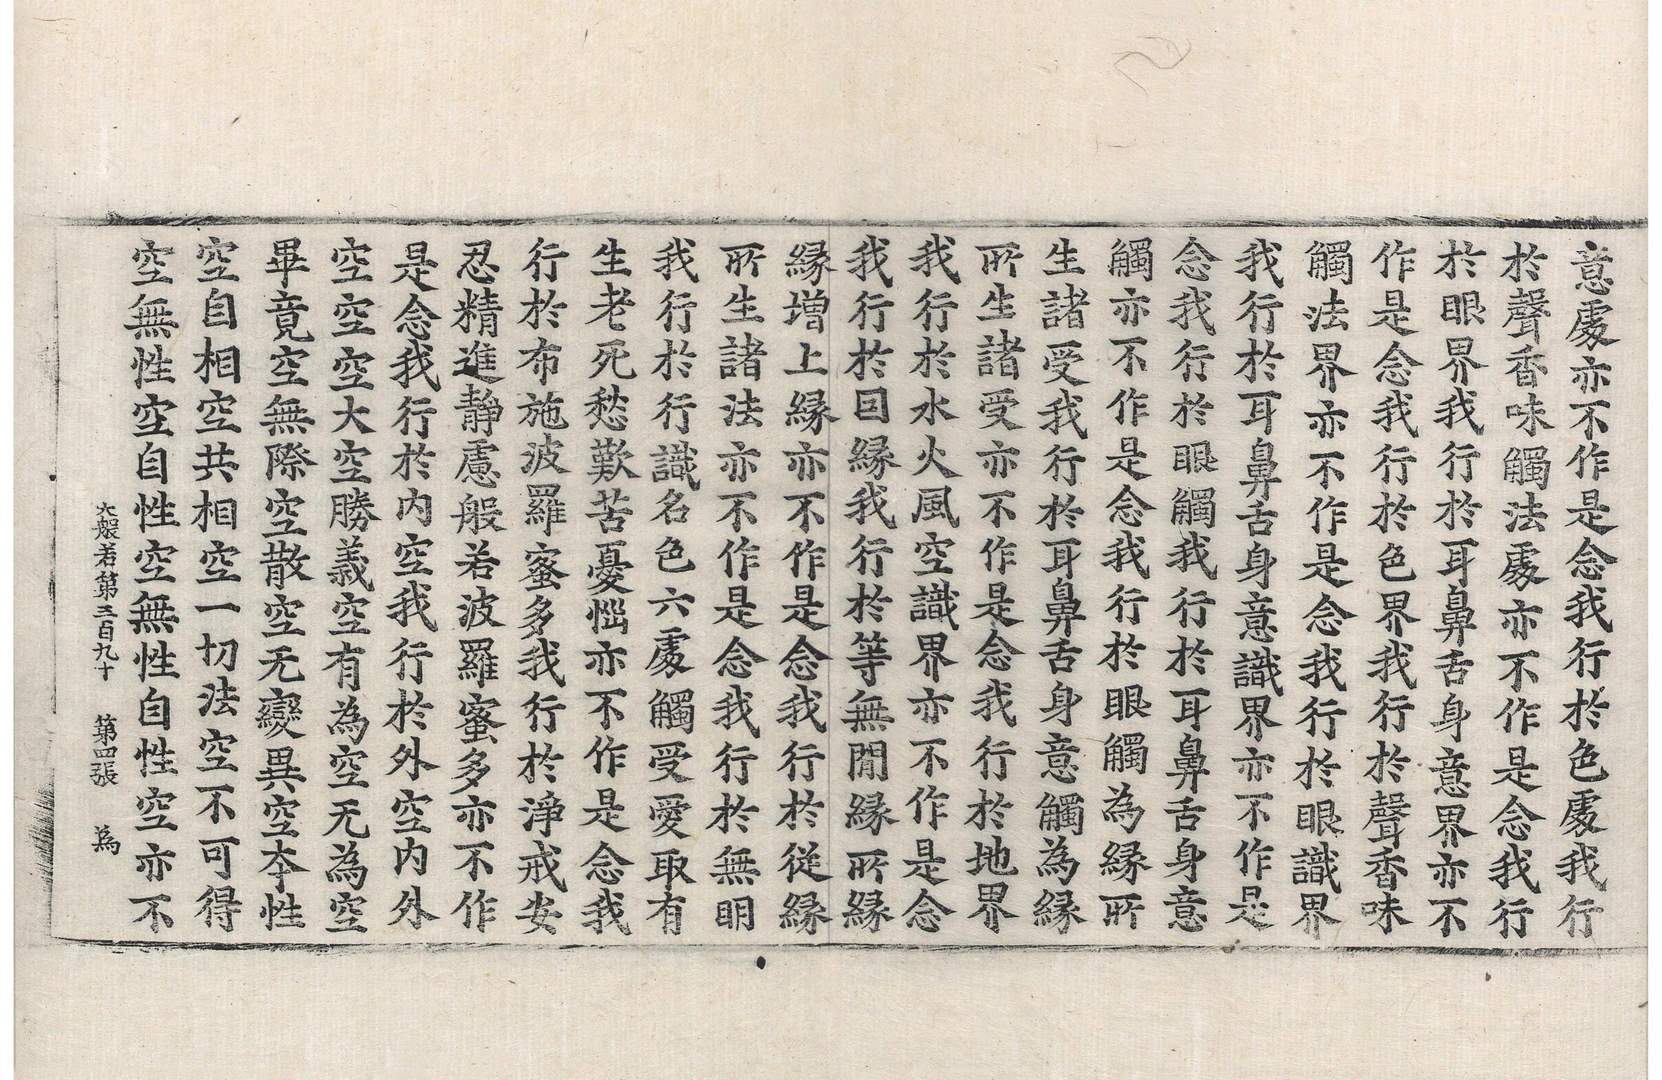 意處亦不作是念我行於色處我行
於聲香味觸法處亦不作是念我行
於眼界我行於耳鼻舌身意界亦不
作是念我行於色界我行於聲香味
觸法界亦不作是念我行於眼識界
我行於耳鼻舌身意識界亦不作是
念我行於眼觸我行於耳鼻舌身意
觸亦不作是念我行於眼觸為緣所
生諸受我行於耳鼻舌身意觸為緣
所生諸受亦不作是念我行於地界
我行於水火風空識界亦不作是念
我行於因緣我行於等無閒緣所緣
緣增上緣亦不作是念我行於從緣
所生諸法亦不作是念我行於無明
我行於行識名色六處觸受愛取有
生老死愁歎苦憂惱亦不作是念我
行於布施波羅蜜多我行於淨戒安
忍精進靜慮般若波羅蜜多亦不作
是念我行於內空我行於外空內外
空空空大空勝義空有為空无為空
畢竟空無際空散空无變異空本性
空自相空共相空一切法空不可得
空無性空自性空無性自性空亦不
大般若第三百九十 第四張 為